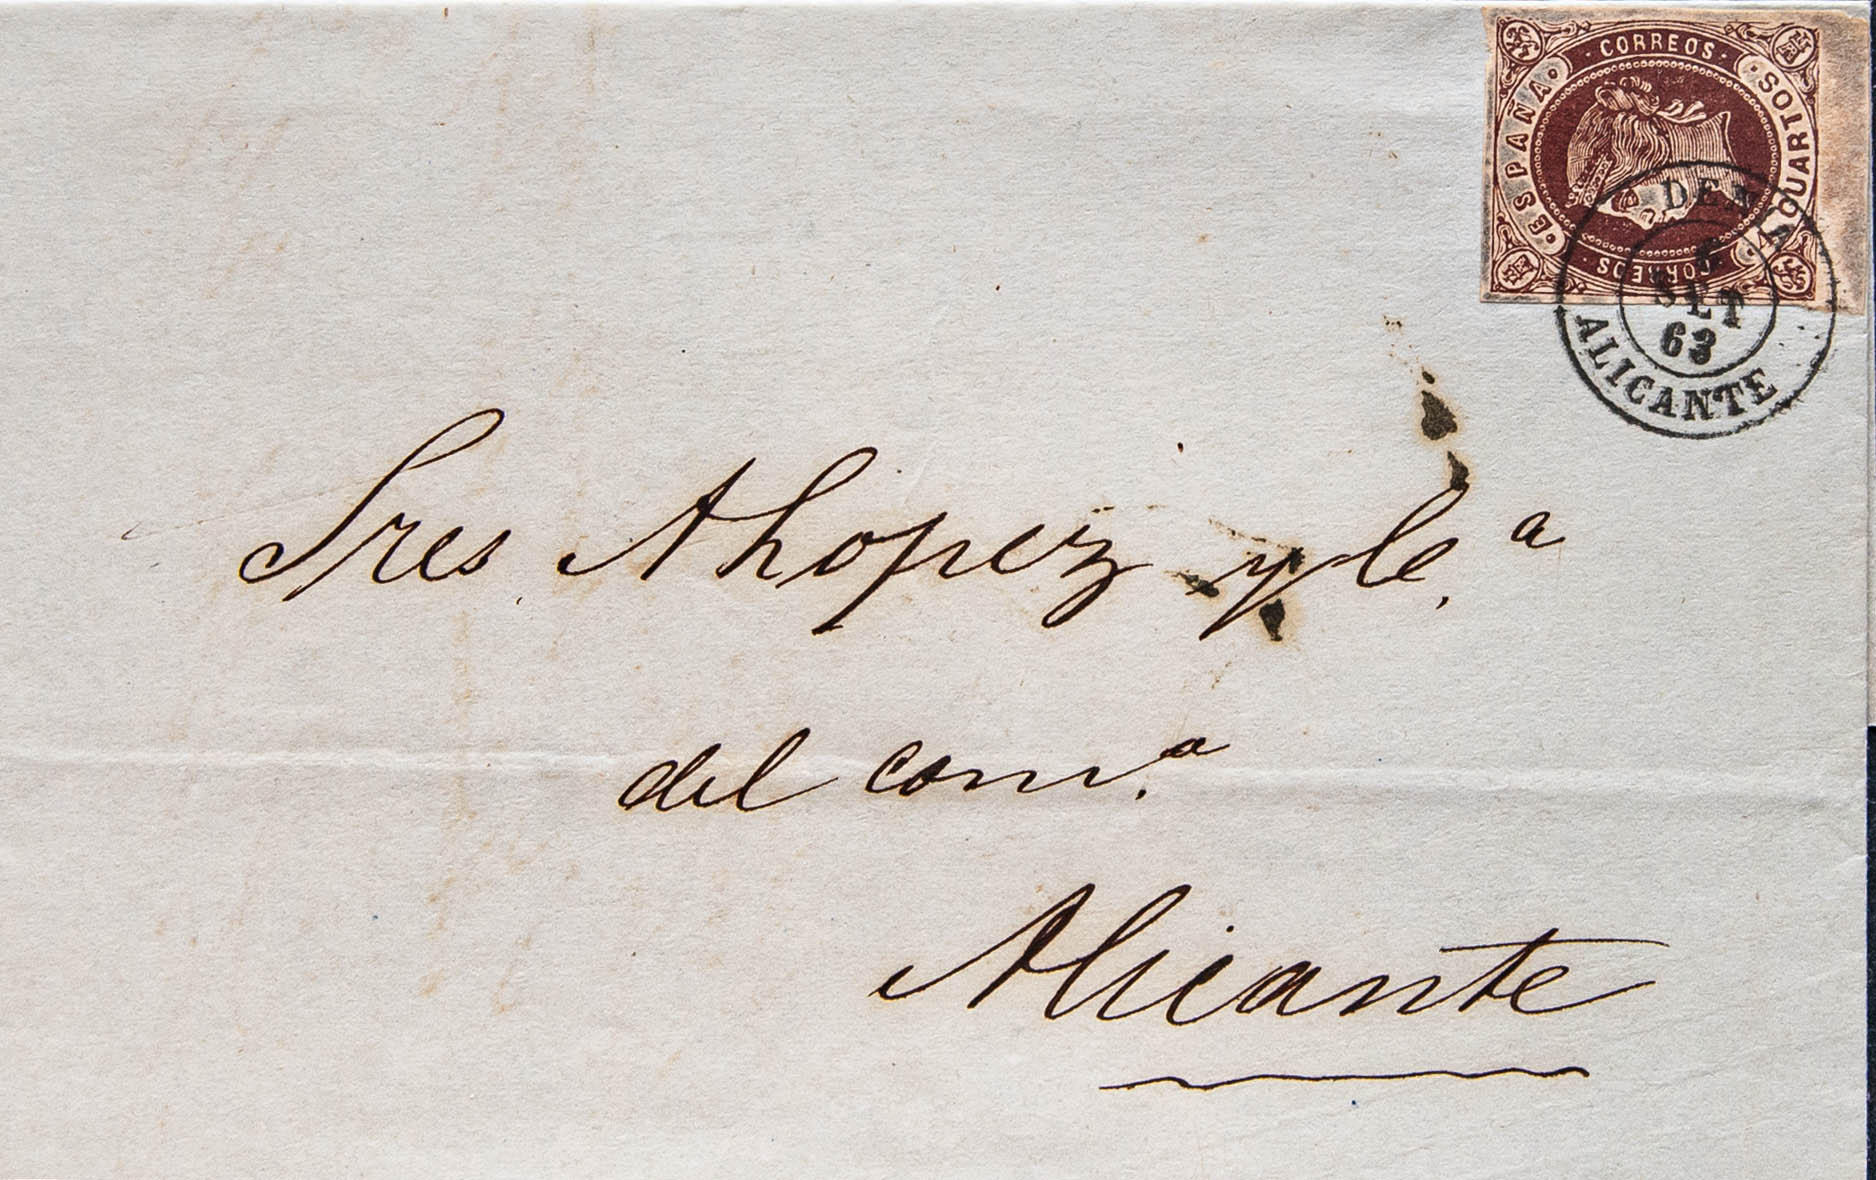 CORREOS
ESPAÑA
4 CUARTOS
CORREOS
DENIA
SET
63
ALICANTE
Sres A Lopez y Cª
del comº
Alicante